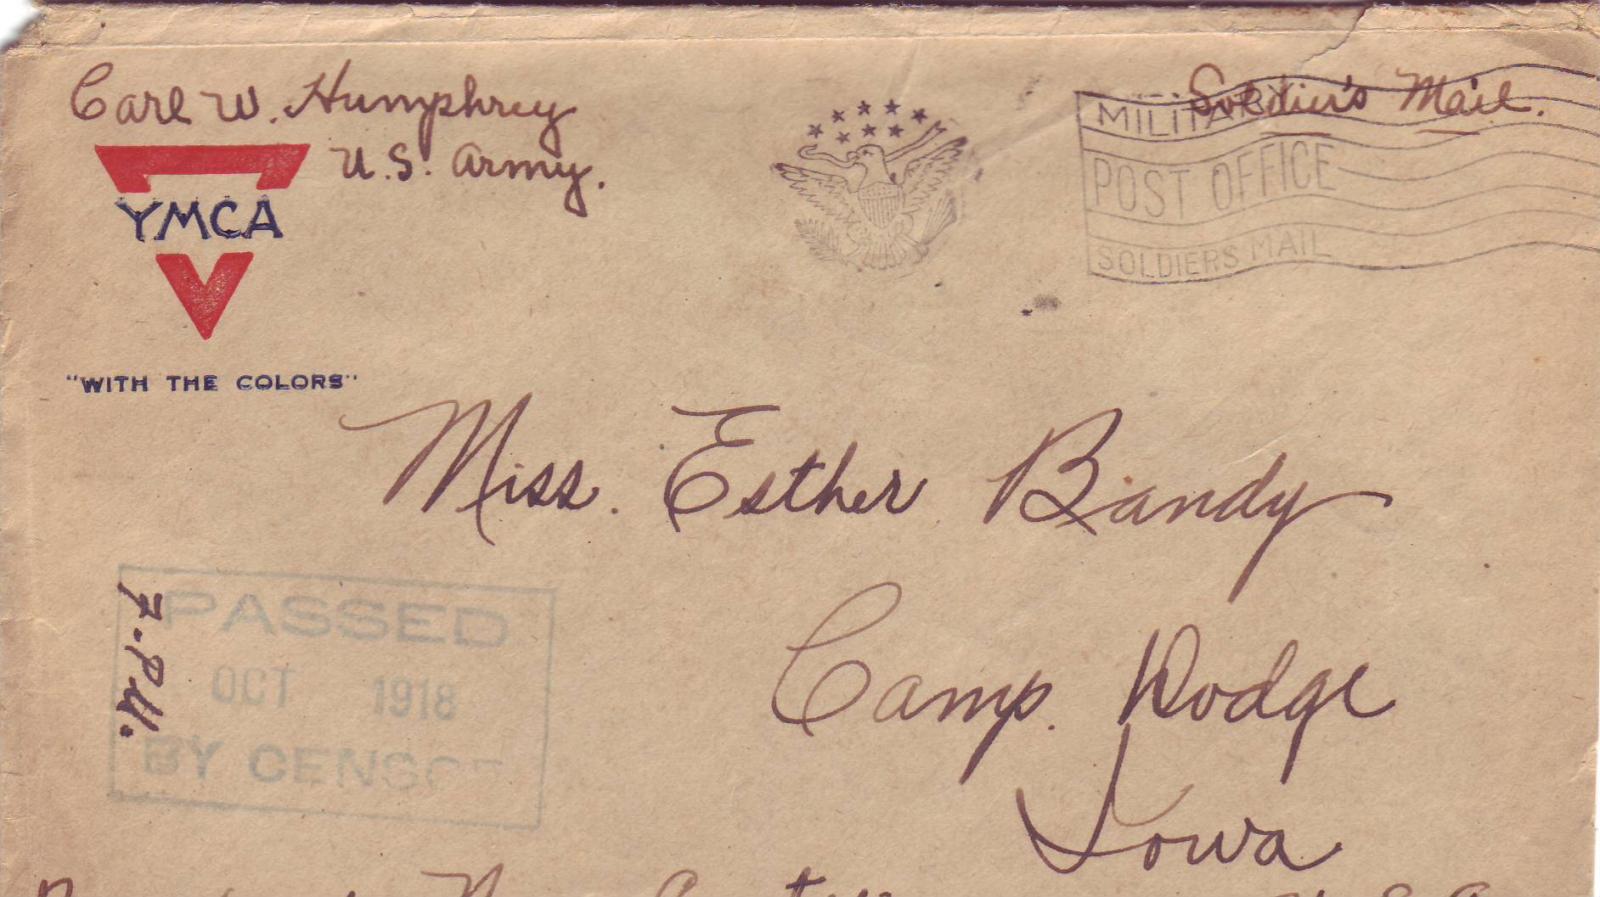 Carl W. Humphrey
U.S. Army.
YMCA
"WITH THE COLORS"
Soldier's Mail.
MILITARY
POST OFFICE
SOLDIERS MAIL
Miss. Esther Bandy
Camp. Dodge
Iowa
PASSED
OCT 1918
BY CENSOR